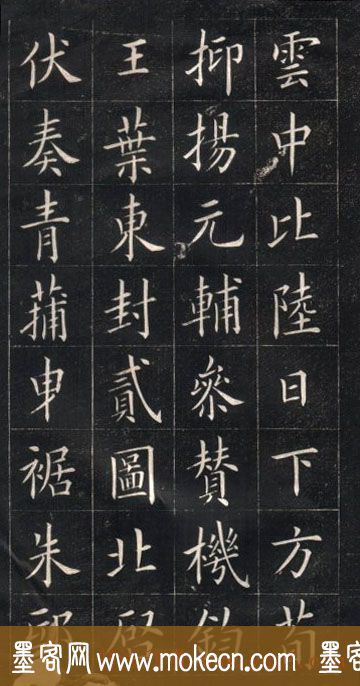 雲中比陸日下方荀
抑揚元輔參贊機鈞
王葉東封貳圖北
伏奏青蒲曳裾朱邸
墨客网 www.mokecn.com 墨客网